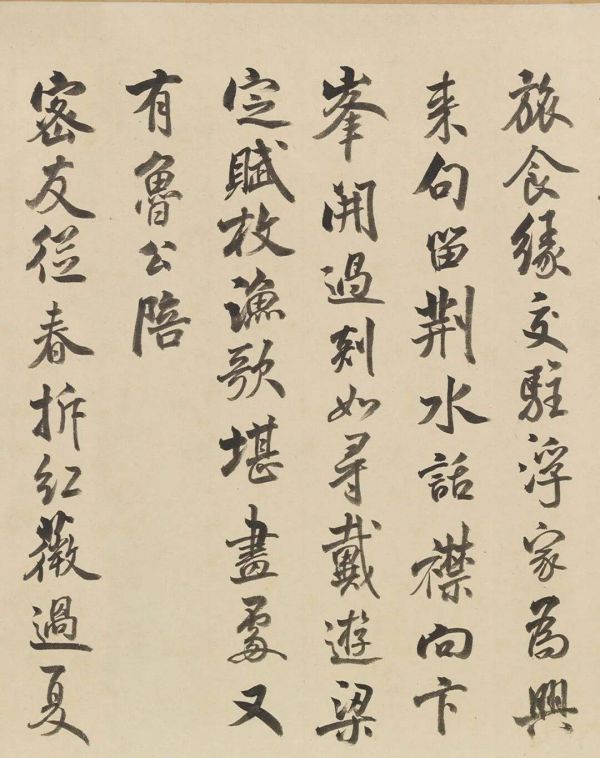 旅食緣交駐浮家為興
来句留荆水話襟向卞
峯開過剡如尋戴遊梁
定賦枚漁歌堪畫處又
有魯公陪
密友従春拆紅薇過夏